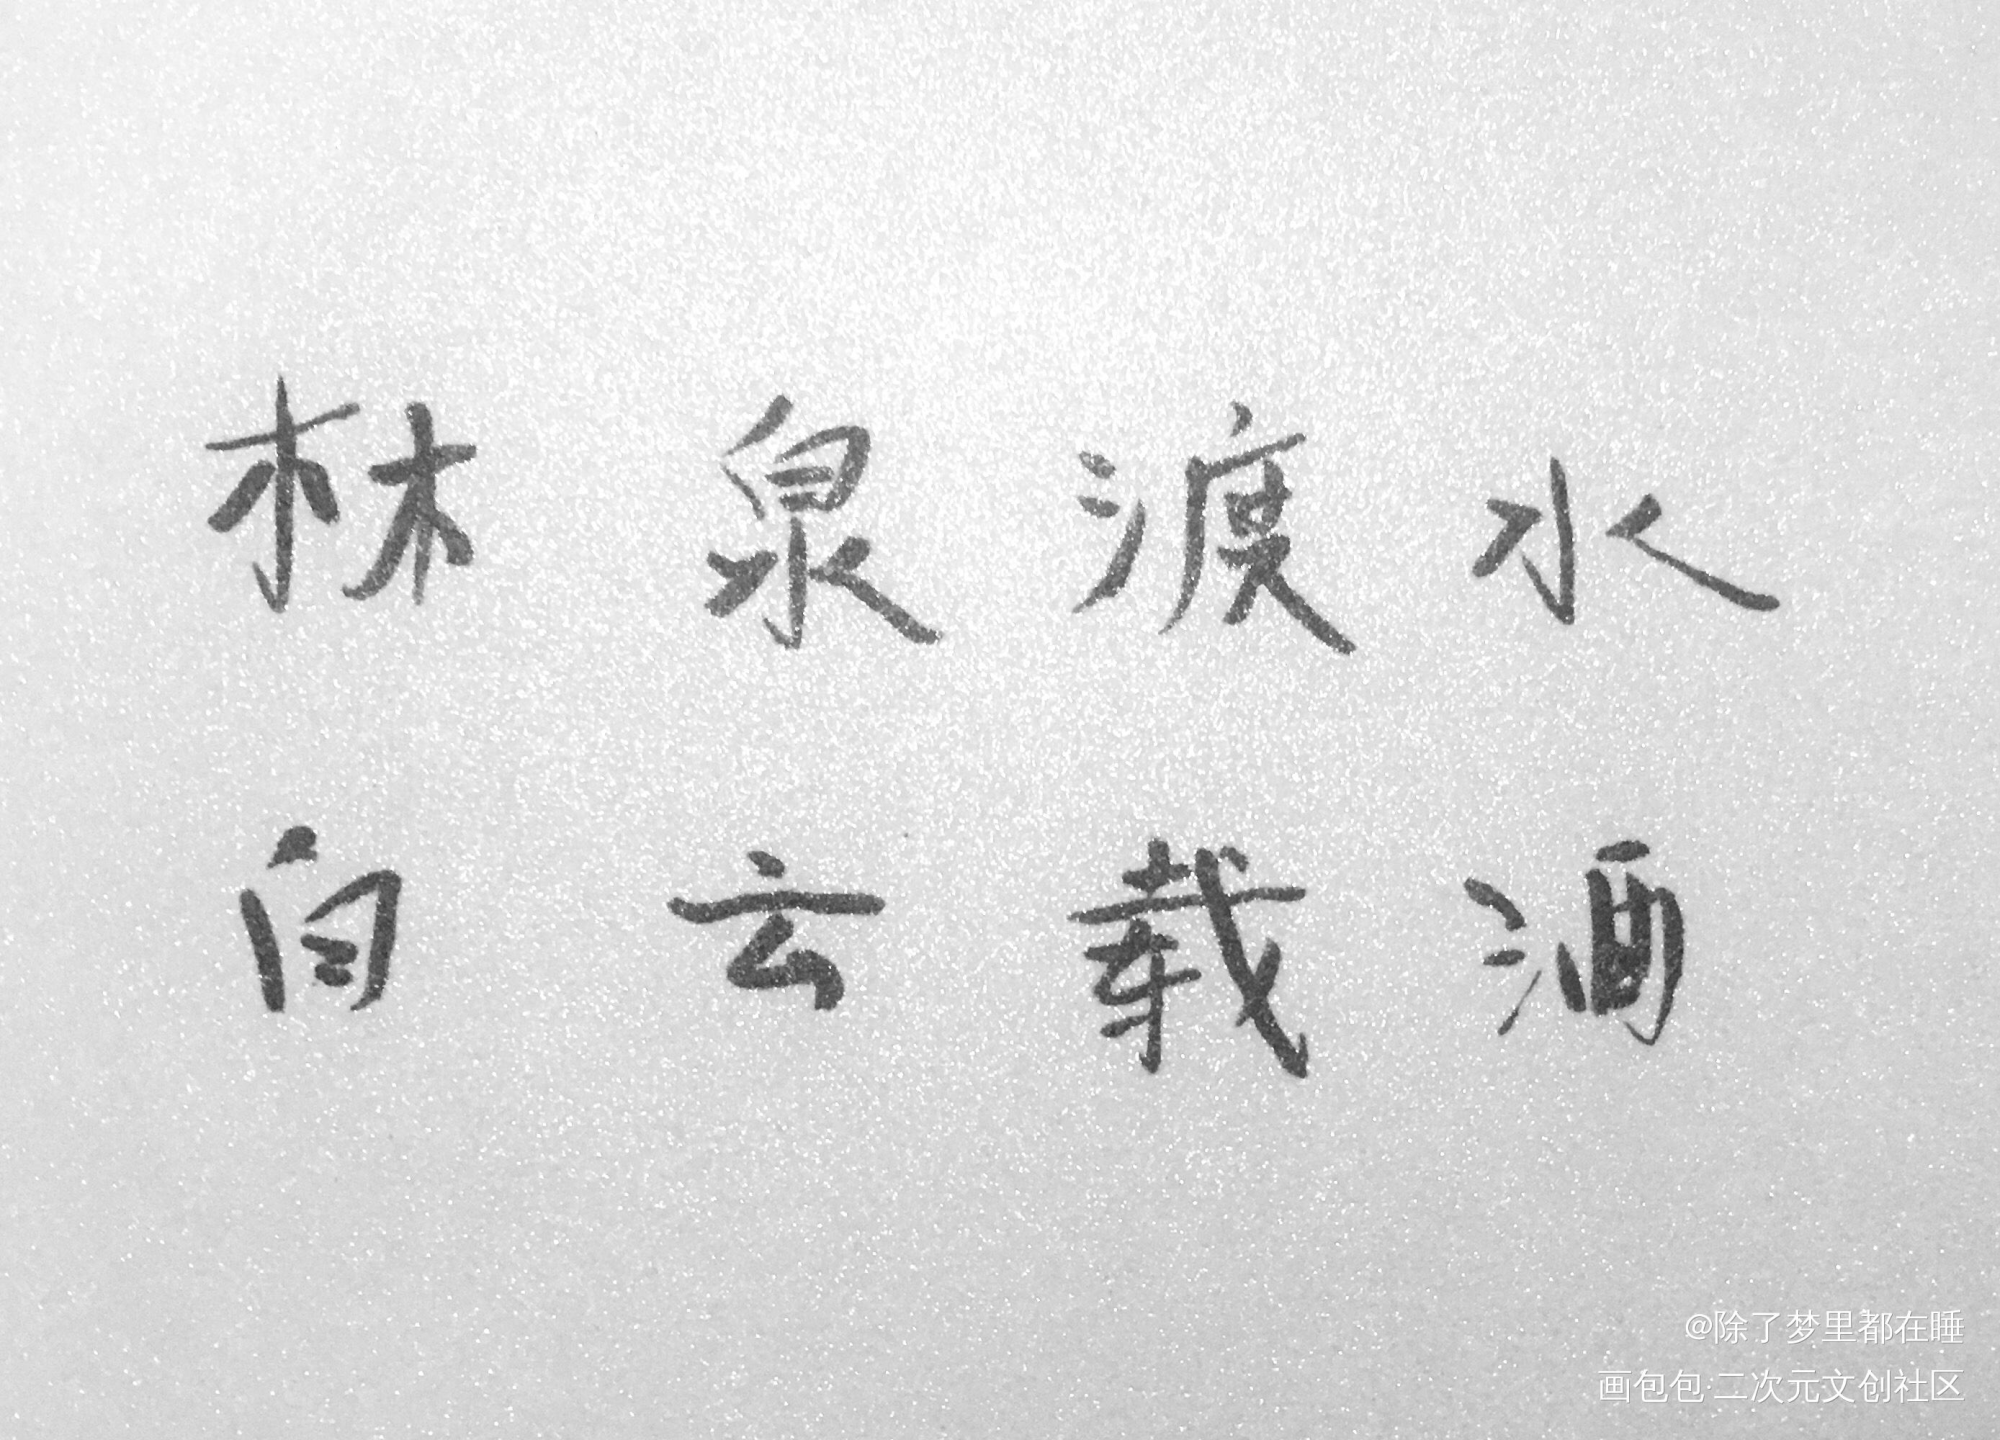 林泉渡水
白云载酒
@除了梦里都在睡
画包包·二次元文创社区